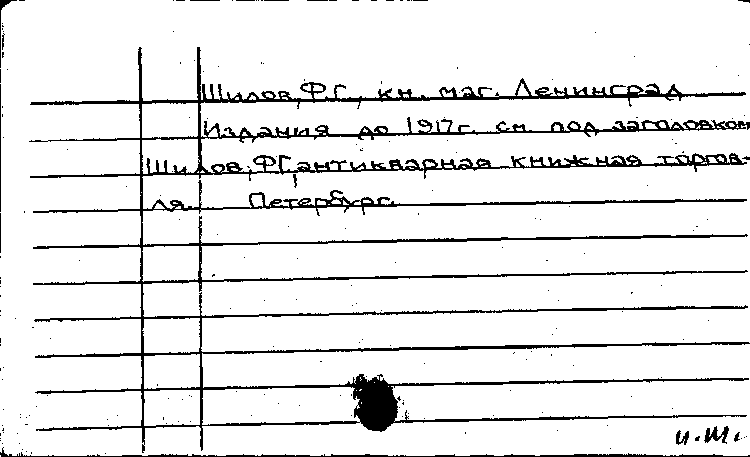 Шилов, Ф.Г., кн. маг. Ленинград
Издания до 1917г. см. под заголовком
Шилов, Ф.Г, антикварная книжная торгов-
ля. Петербург.
и.Ш.